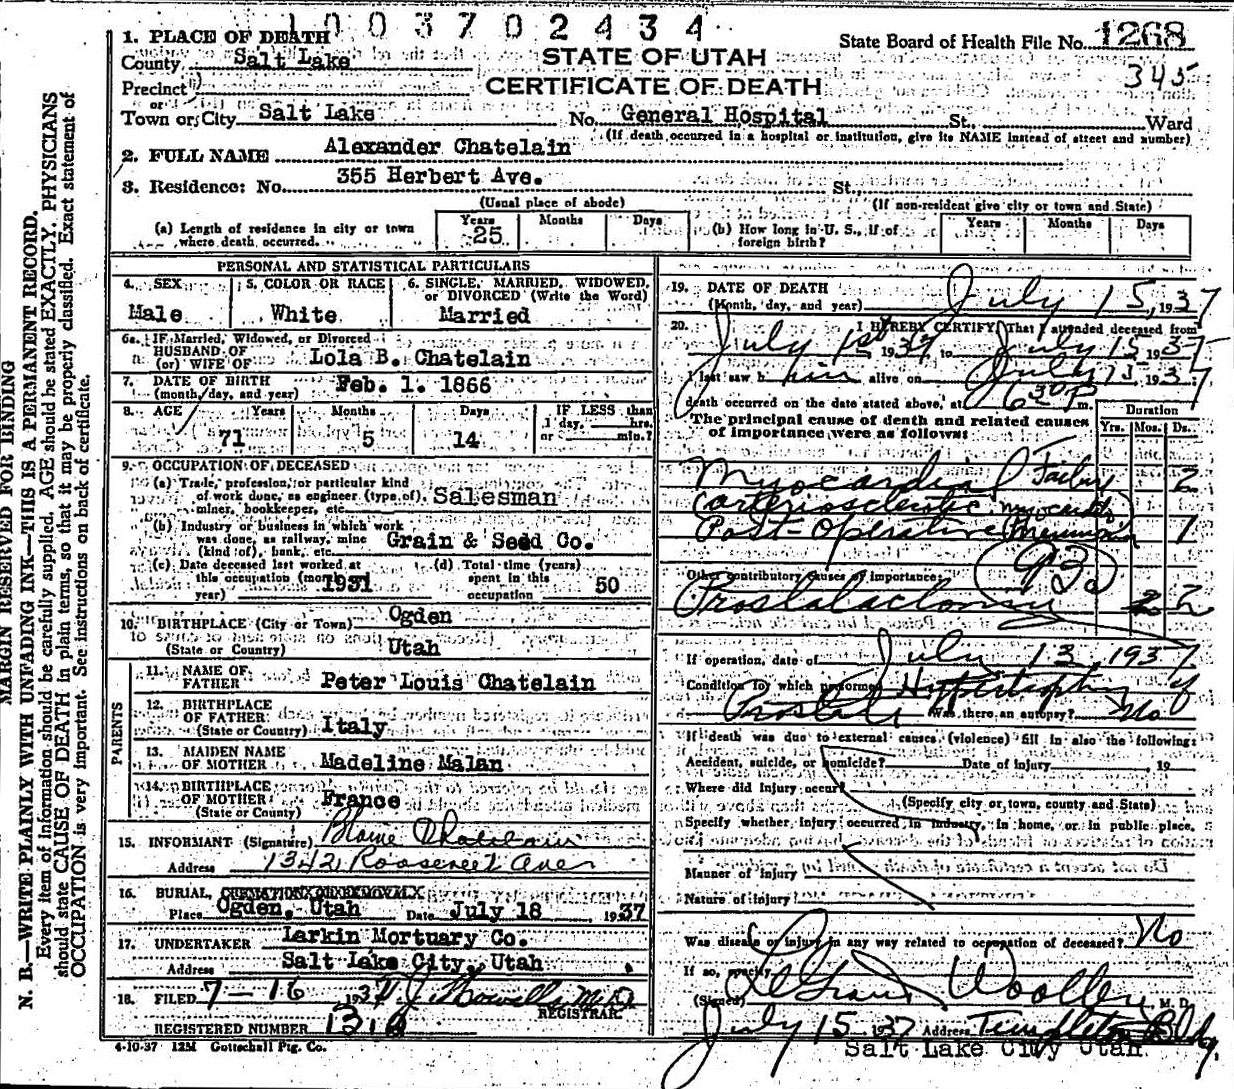 1003702434
1. PLACE OF DEATH
STATE OF UTAH
State Board of Health File No. 1268
County Salt Lake
345
Precinct
CERTIFICATE OF DEATH
or
Town or City Salt Lake No. General Hospital St., Ward
(If death occurred in a hospital or institution, give its NAME instead of street and number)
2. FULL NAME Alexander Chatelain
3. Residence: No. 355 Herbert Ave. St.,
(Usual place of abode) (If non-resident give city or town and State)
(a) Length of residence in city or town where death occurred. Years 25 Months Days
(b) How long in U. S., if of foreign birth? Years Months Days
MARGIN RESERVED FOR BINDING
N. B.—WRITE PLAINLY WITH UNFADING INK—THIS IS A PERMANENT RECORD.
Every item of information should be carefully supplied. AGE should be stated EXACTLY. PHYSICIANS
should state CAUSE OF DEATH in plain terms, so that it may be properly classified. Exact statement of
OCCUPATION is very important. See instructions on back of certificate.
PERSONAL AND STATISTICAL PARTICULARS
4. SEX 5. COLOR OR RACE 6. SINGLE, MARRIED, WIDOWED,
or DIVORCED (Write the Word)
Male White Married
6a. IF Married, Widowed, or Divorced
HUSBAND OF
(or) WIFE OF Lola B. Chatelain
7. DATE OF BIRTH
(month, day, and year) Feb. 1. 1866
8. AGE Years Months Days IF LESS than
1 day, hrs.
71 5 14 or min.?
9. OCCUPATION OF DECEASED
(a) Trade, profession, or particular kind
of work done, as engineer (type of),
miner, bookkeeper, etc. Salesman
(b) Industry or business in which work
was done, as railway, mine
(kind of), bank, etc. Grain & Seed Co.
(c) Date deceased last worked at
this occupation (month
year) 1931
(d) Total time (years)
spent in this
occupation 50
10. BIRTHPLACE (City or Town) Ogden
(State or Country) Utah
PARENTS
11. NAME OF
FATHER Peter Louis Chatelain
12. BIRTHPLACE
OF FATHER
(State or Country) Italy
13. MAIDEN NAME
OF MOTHER Madeline Malan
14. BIRTHPLACE
OF MOTHER
(State or Country) France
15. INFORMANT (Signature) Blaine Chatelain
Address 1342 Roosevelt Ave
16. BURIAL, CREMATION OR REMOVAL
Place Ogden, Utah Date July 18 1937
17. UNDERTAKER Larkin Mortuary Co.
Address Salt Lake City, Utah
18. FILED 7-16 1937 M.D.
REGISTRAR
REGISTERED NUMBER
4-10-37 12M Gottschall Ptg. Co.
19. DATE OF DEATH
(Month, day, and year) July 15, 1937
20. I HEREBY CERTIFY, That I attended deceased from
July 1st 1937 to July 15 1937
I last saw him alive on July 15 1937
death occurred on the date stated above, at 6:30 P m.
The principal cause of death and related causes
of importance were as follows:
Duration
Yrs. Mos. Ds.
Myocardial Failure 2
(arteriosclerotic myocarditis)
Post-Operative Pneumonia 1
93c
Other contributory causes of importance:
Prostatectomy 2
If operation, date of July 13, 1937
Condition for which performed Hypertrophy of
Prostate Was there an autopsy? No
If death was due to external causes (violence) fill in also the following:
Accident, suicide, or homicide? Date of injury 19
Where did injury occur?
(Specify city or town, county and State)
Specify whether injury occurred in industry, in home, or in public place.
Manner of injury
Nature of injury
Was disease or injury in any way related to occupation of deceased? No
If so, specify
(Signed) Woolley M. D.
July 15 1937 Address Templeton Bldg.
Salt Lake City Utah